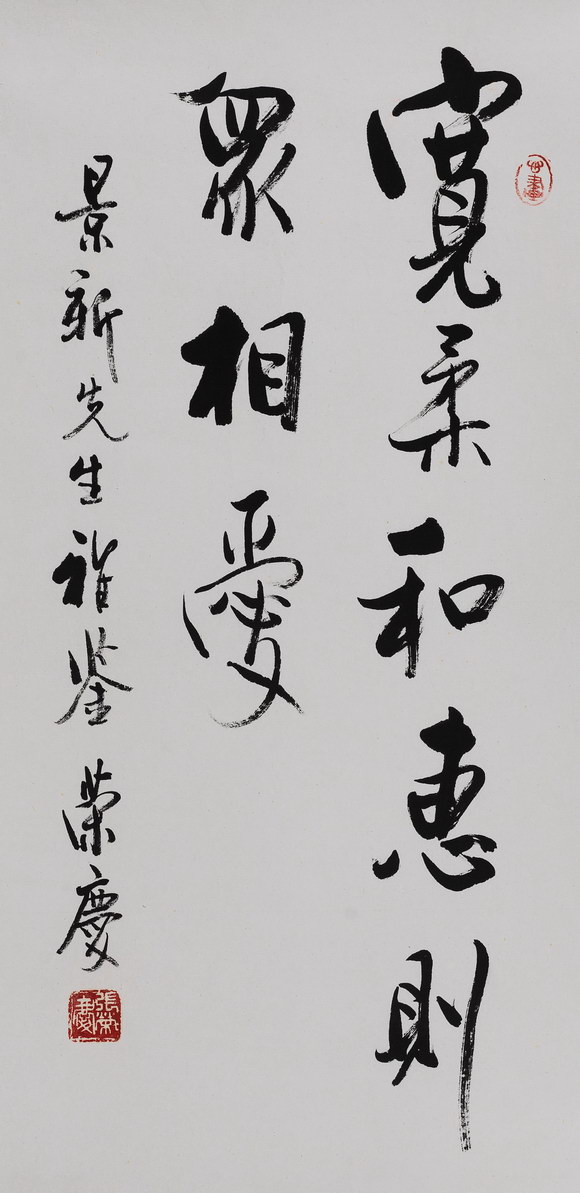 寬柔和惠則
眾相愛
景新先生雅鉴 荣慶
張榮慶